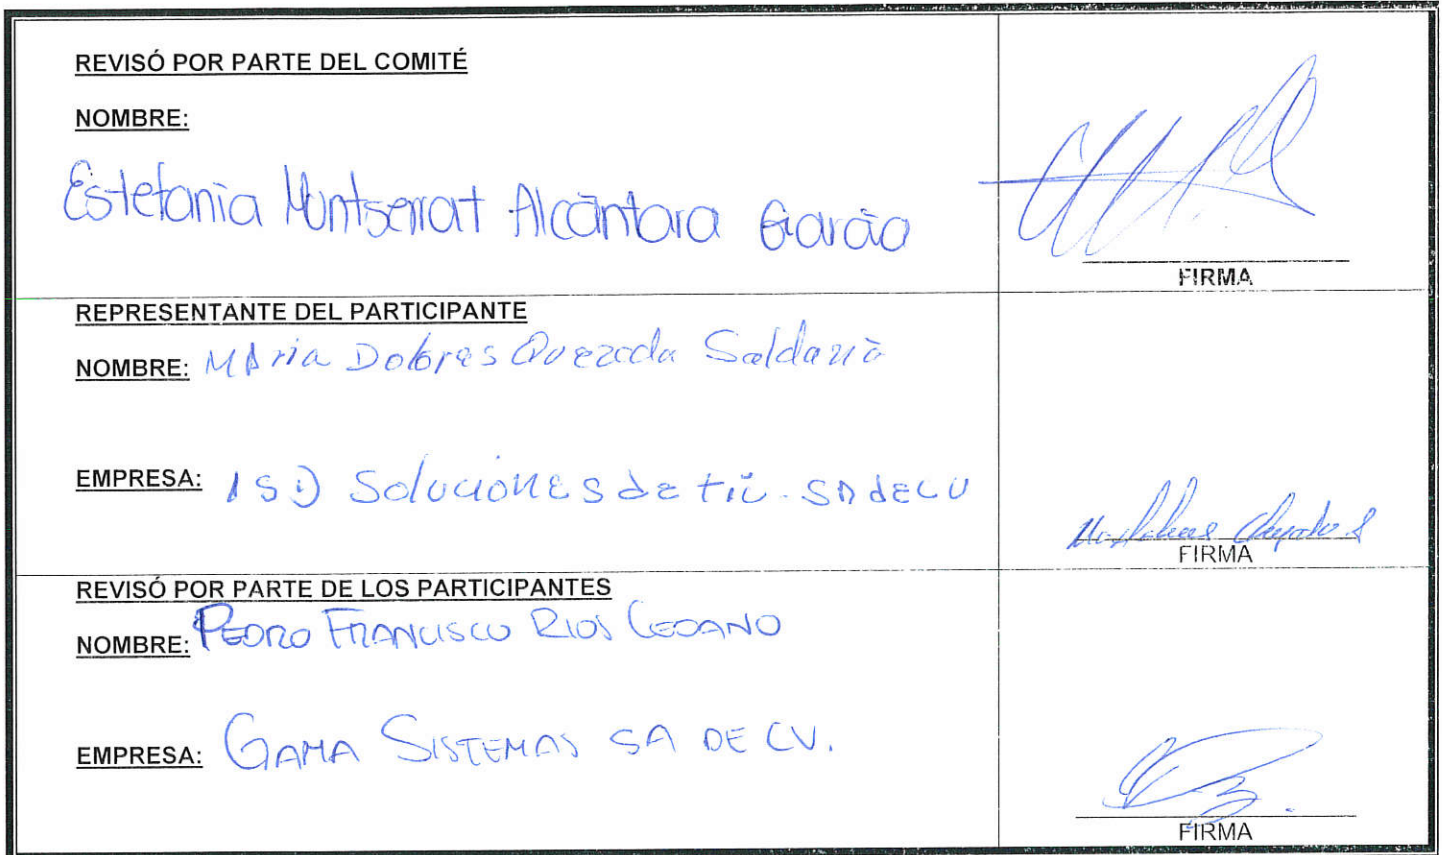 REVISÓ POR PARTE DEL COMITÉ
NOMBRE:
Estefania Montserrat Alcántara García
FIRMA
REPRESENTANTE DEL PARTICIPANTE
NOMBRE: MAria Dolores Quezada Saldaña
EMPRESA: ISD Soluciones de tic. SA de CV
FIRMA
REVISÓ POR PARTE DE LOS PARTICIPANTES
NOMBRE: PEDRO FRANCISCO RIOS CEDANO
EMPRESA: GAMA SISTEMAS SA DE CV.
FIRMA